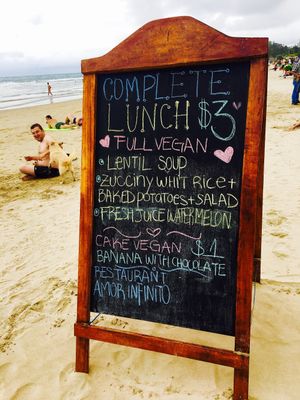 COMPLETE
LUNCH $3
FULL VEGAN
• LENTIL SOUP
• ZUCCINY WHIT RICE +
BAKED POTATOES + SALAD
• FRESH JUICE WATERMELON
CAKE VEGAN $1
BANANA WITH CHOCOLATE
RESTAURANT
AMOR INFINITO